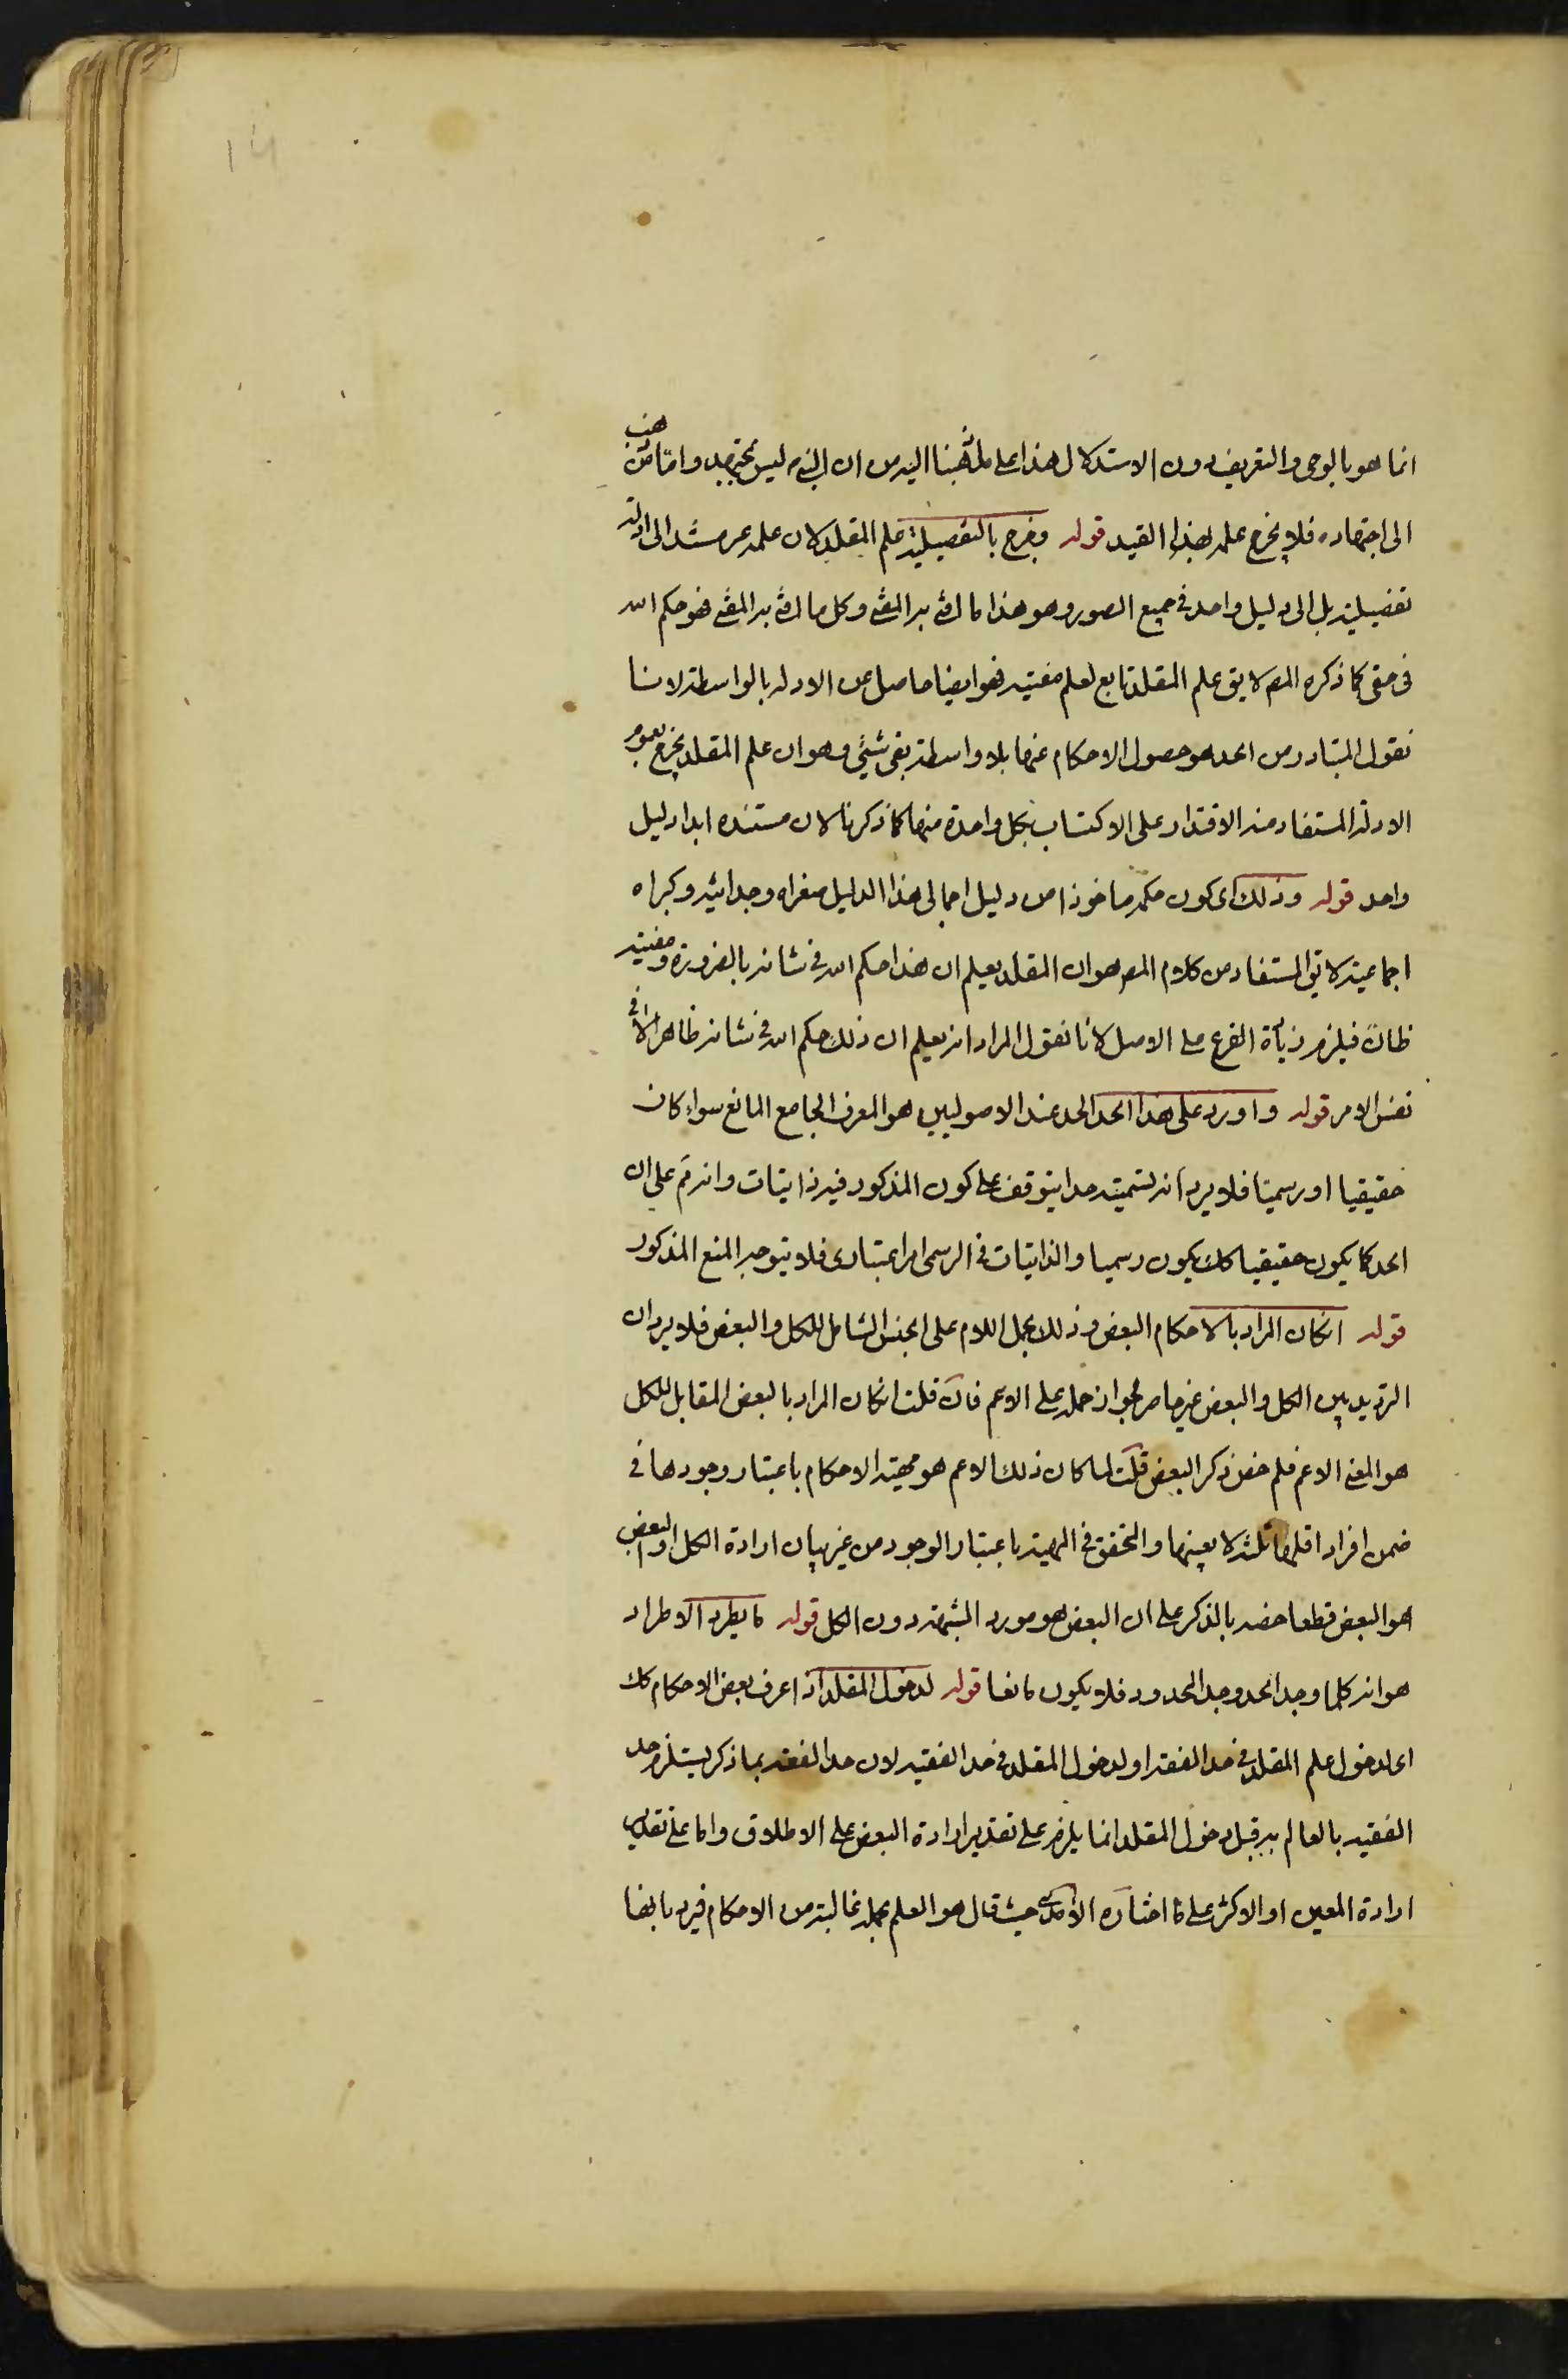 14
انما هو بالوحى والتعريف دون الاستدلال هذا على مذهبنا اليه من ان النبى ليس بمجتهد واما من ذهب
الى اجتهاده فلا يخرج علمه بهذا القيد قوله وخرج بالتفصيلية علم المقلد لان علمه غير مستند الى ادلة
تفصيلية بل الى دليل واحد فى جميع الصور وهو هذا ما افتى به المفتى وكل ما افتى به المفتى فهو حكم الله
فى حقى كما ذكره المص لا يق علم المقلد تابع لعلم مفتيه فهو ايضا حاصل عن الادلة بالواسطة لانا
نقول المتبادر من الحد هو حصول الاحكام عنها بلا واسطة بقى شئ وهو ان علم المقلد يخرج بعموم
الادلة المستفاد منه الاقتدار على الاكتساب بكل واحدة منها كما ذكرنا لان مستنده ابدا دليل
واحد قوله وذلك اى كون حكمه ماخوذا من دليل اجمالى هذا الدليل صغراه وجدانية وكبراه
اجماعية لا يق المستفاد من كلام المص هو ان المقلد يعلم ان هذا حكم الله فى شانه بالضرورة ومفتيه
ظان فيلزم زيادة الفرع على الاصل لانا نقول المراد انه يعلم ان ذلك حكم الله فى شانه ظاهرا لا فى
نفس الامر قوله واورد على هذا الحد الحد عند الاصوليين هو المعرف الجامع المانع سواء كان
حقيقيا او رسميا فلا يرد ان تسميته حدا يتوقف على كون المذكور فيه ذاتيات وانه تم على ان
الحد كما يكون حقيقيا كك يكون رسميا والذاتيات فى الرسمى امر اعتبارى فلا يتوجه المنع المذكور
قوله ان كان المراد بالاحكام البعض وذلك بحمل اللام على الجنس الشامل للكل والبعض فلا يرد ان
الترديد بين الكل والبعض غير حاصر لجواز حمله على الاعم فان قلت ان كان المراد بالبعض المقابل للكل
هو المعنى الاعم فلم خص ذكر البعض قلت لما كان ذلك الاعم هو مهية الاحكام باعتبار وجودها فى
ضمن افراد اقلها ثلثة لا بعينها والتحقق فى المهية باعتبار الوجود من غير بيان ارادة الكل او البعض
هو البعض قطعا خصه بالذكر على ان البعض هو مورد الشبهة دون الكل قوله ما يطرد الاطراد
هو انه كلما وجد الحد وجد المحدود فلا يكون مانعا قوله لدخول المقلد اذا عرف بعض الاحكام كك
اى لدخول علم المقلد فى حد الفقه او لدخول المقلد فى حد الفقيه لان حد الفقه بما ذكر يستلزم حد
الفقيه بالعالم به قبل دخول المقلد انما يلزم على تقدير ارادة البعض على الاطلاق واما على تقدير
ارادة المعين او الاكثر على ما اختاره الآمدى حيث قال هو العلم بجملة غالبة من الاحكام فيرد بانها